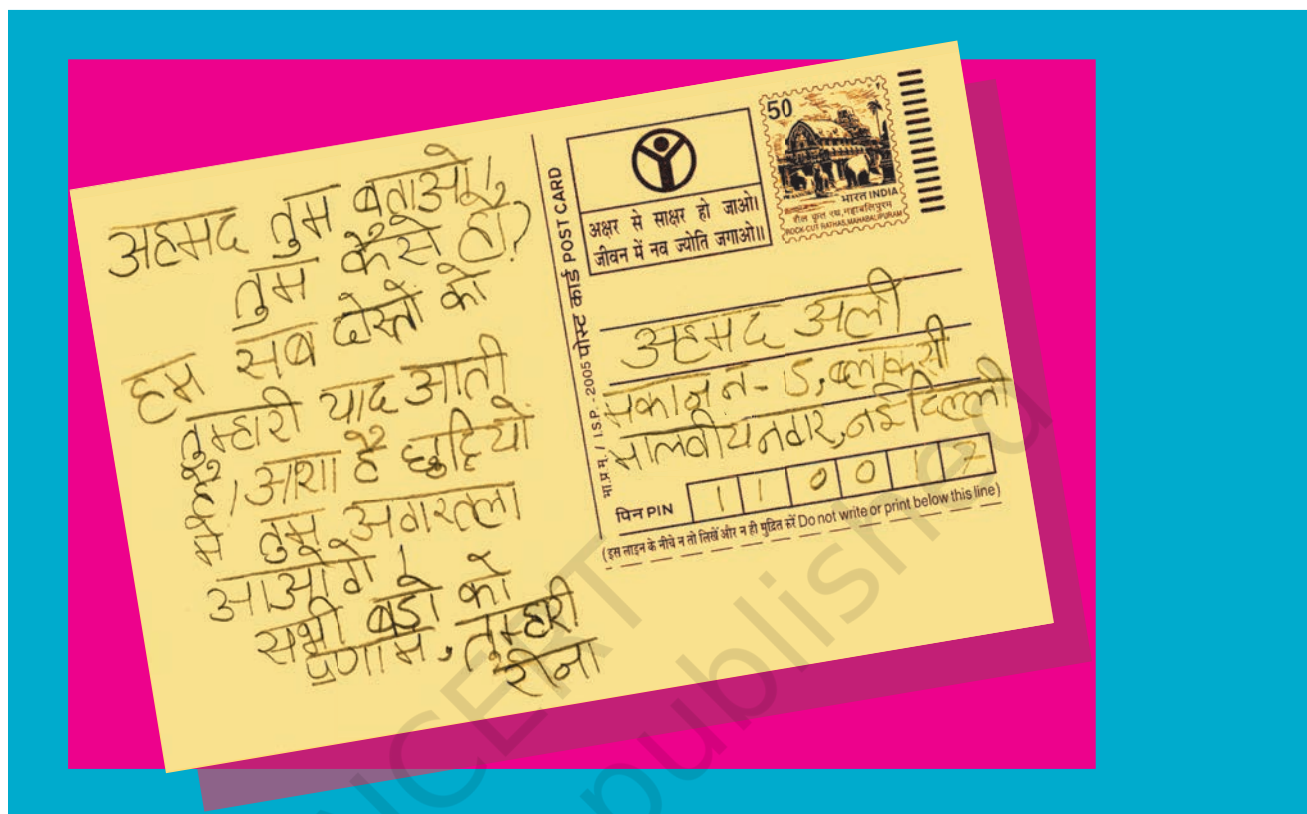 अहमद तुम बताओ,
तुम कैसे हो?
हम सब दोस्तों को
तुम्हारी याद आती
है। आशा है छुट्टियों
में तुम अगरतला
आओगे।
सभी बड़ों को
प्रणाम, तुम्हारी
रीना
भा.प्र.मु. / I.S.P. - 2005 पोस्ट कार्ड POST CARD
अक्षर से साक्षर हो जाओ।
जीवन में नव ज्योति जगाओ॥
50
भारत INDIA
शैल कृत रथ, महाबलिपुरम
ROCK-CUT RATHAS, MAHABALIPURAM
अहमद अली
मकान न - 5, ब्लाक सी
मालवीय नगर, नई दिल्ली
पिन PIN 110017
(इस लाइन के नीचे न तो लिखें और न ही मुद्रित करें Do not write or print below this line)
NCERT
published